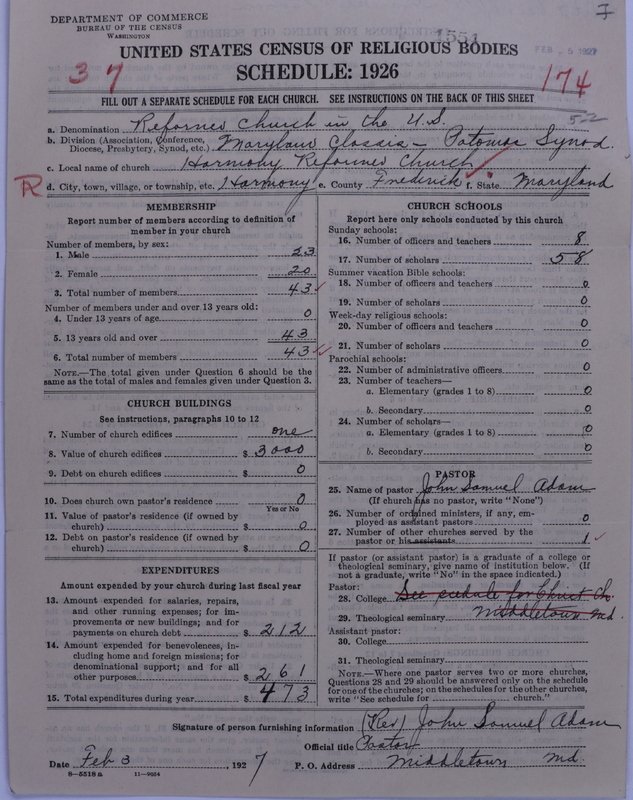 DEPARTMENT OF COMMERCE
BUREAU OF THE CENSUS
WASHINGTON
1551
FEB 5 1927
UNITED STATES CENSUS OF RELIGIOUS BODIES
SCHEDULE: 1926
37
174
FILL OUT A SEPARATE SCHEDULE FOR EACH CHURCH. SEE INSTRUCTIONS ON THE BACK OF THIS SHEET
52
a. Denomination Reformed Church in the U.S.
b. Division (Association, Conference, Diocese, Presbytery, Synod, etc.) Maryland Classis - Potomac Synod.
c. Local name of church Harmony Reformed Church
R d. City, town, village, or township, etc. Harmony e. County Frederick f. State Maryland
MEMBERSHIP
Report number of members according to definition of
member in your church
Number of members, by sex:
1. Male 23
2. Female 20
3. Total number of members 43
Number of members under and over 13 years old:
4. Under 13 years of age 0
5. 13 years old and over 43
6. Total number of members 43
NOTE.—The total given under Question 6 should be the
same as the total of males and females given under Question 3.
CHURCH BUILDINGS
See instructions, paragraphs 10 to 12
7. Number of church edifices one
8. Value of church edifices $ 3000
9. Debt on church edifices $ 0
10. Does church own pastor's residence 0
Yes or No
11. Value of pastor's residence (if owned by
church) $ 0
12. Debt on pastor's residence (if owned by
church) $ 0
EXPENDITURES
Amount expended by your church during last fiscal year
13. Amount expended for salaries, repairs,
and other running expenses; for im-
provements or new buildings; and for
payments on church debt $ 212
14. Amount expended for benevolences, in-
cluding home and foreign missions; for
denominational support; and for all
other purposes $ 261
15. Total expenditures during year $ 473
CHURCH SCHOOLS
Report here only schools conducted by this church
Sunday schools:
16. Number of officers and teachers 8
17. Number of scholars 58
Summer vacation Bible schools:
18. Number of officers and teachers 0
19. Number of scholars 0
Week-day religious schools:
20. Number of officers and teachers 0
21. Number of scholars 0
Parochial schools:
22. Number of administrative officers 0
23. Number of teachers—
a. Elementary (grades 1 to 8) 0
b. Secondary 0
24. Number of scholars—
a. Elementary (grades 1 to 8) 0
b. Secondary 0
PASTOR
25. Name of pastor John Samuel Adam
(If church has no pastor, write "None")
26. Number of ordained ministers, if any, em-
ployed as assistant pastors 0
27. Number of other churches served by the
pastor or his assistants 1
If pastor (or assistant pastor) is a graduate of a college or
theological seminary, give name of institution below. (If
not a graduate, write "No" in the space indicated.)
Pastor:
28. College See schedule for Christ Ch.
29. Theological seminary Middletown Md.
Assistant pastor:
30. College
31. Theological seminary
NOTE.—Where one pastor serves two or more churches,
Questions 28 and 29 should be answered only on the schedule
for one of the churches; on the schedules for the other churches,
write "See schedule for church."
Signature of person furnishing information (Rev) John Samuel Adam
Official title Pastor
Date Feb 3, 1927 P. O. Address Middletown Md.
8—5518 a 11—9054